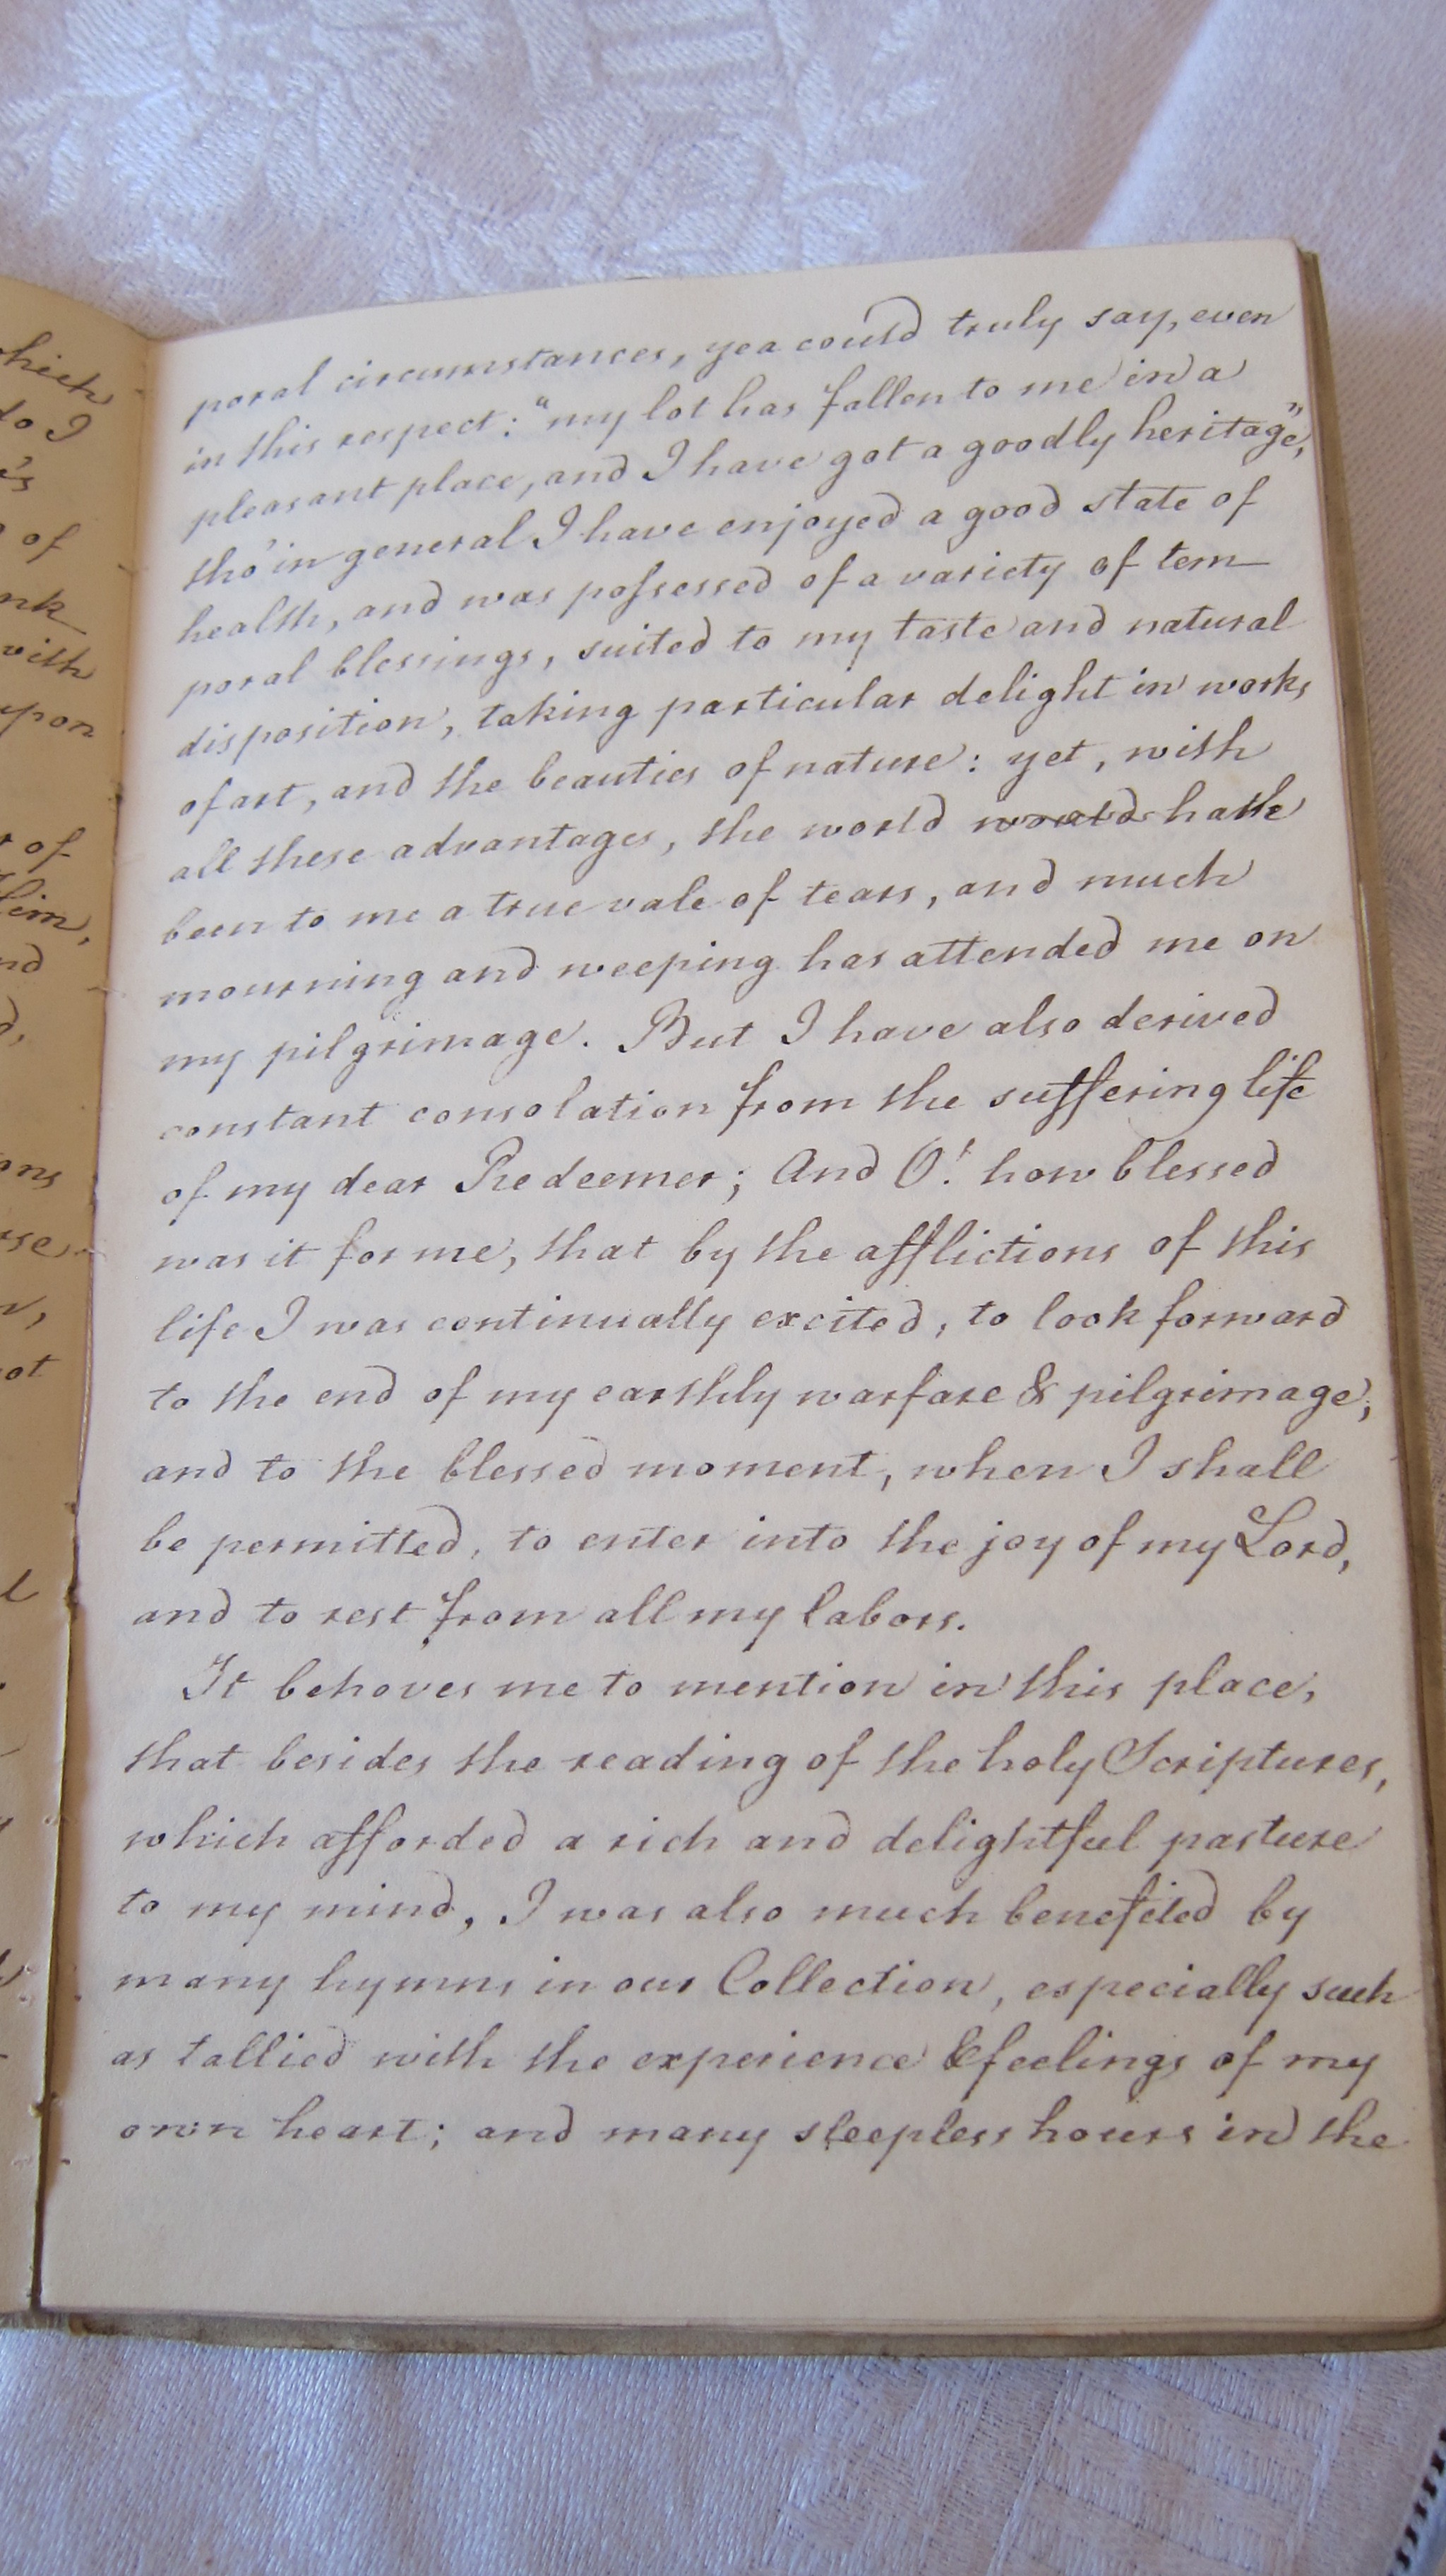 hich
to I
of
nk
with
upon
of
him,
nd
ons
ot
poral circumstances, yea could truly say, even
in this respect: "my lot has fallen to me in a
pleasant place, and I have got a goodly heritage",
tho' in general I have enjoyed a good state of
health, and was poſsessed of a variety of tem-
poral blessings, suited to my taste and natural
disposition, taking particular delight in works
of art, and the beauties of nature: yet, with
all these advantages, the world would hath
been to me a true vale of tears, and much
mourning and weeping has attended me on
my pilgrimage. But I have also derived
constant consolation from the suffering life
of my dear Redeemer; And O! how blessed
was it for me, that by the afflictions of this
life I was continually excited, to look forward
to the end of my earthly warfare & pilgrimage,
and to the blessed moment, when I shall
be permitted, to enter into the joy of my Lord,
and to rest from all my labors.
It behoves me to mention in this place,
that besides the reading of the holy Scriptures,
which afforded a rich and delightful pasture
to my mind, I was also much benefited by
many hymns in our Collection, especially such
as tallied with the experience & feelings of my
own heart; and many sleepless hours in the